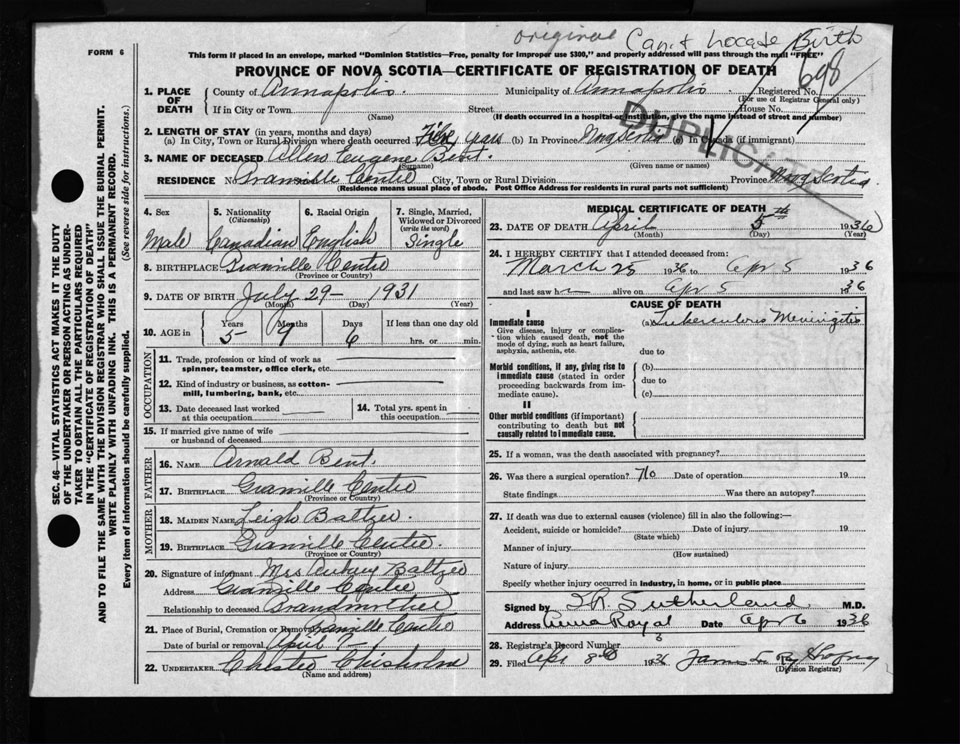 original Can't Locate Birth
FORM 6
This form if placed in an envelope, marked "Dominion Statistics—Free, penalty for improper use $300," and properly addressed will pass through the mail "FREE"
PROVINCE OF NOVA SCOTIA—CERTIFICATE OF REGISTRATION OF DEATH
698
DUPLICATE
1. PLACE OF DEATH
County of Annapolis. Municipality of Annapolis. Registered No.
(For use of Registrar General only)
If in City or Town Street House No.
(Name) (If death occurred in a hospital or institution, give the name instead of street and number)
2. LENGTH OF STAY (in years, months and days)
(a) In City, Town or Rural Division where death occurred Five years (b) In Province Nova Scotia (c) In Canada (if immigrant)
3. NAME OF DECEASED Allen Eugene Bent.
(Surname) (Given name or names)
RESIDENCE No. Granville Centre City, Town or Rural Division Province Nova Scotia
(Residence means usual place of abode. Post Office Address for residents in rural parts not sufficient)
SEC. 46—VITAL STATISTICS ACT MAKES IT THE DUTY
OF THE UNDERTAKER OR PERSON ACTING AS UNDER-
TAKER TO OBTAIN ALL THE PARTICULARS REQUIRED
IN THE "CERTIFICATE OF REGISTRATION OF DEATH"
AND TO FILE THE SAME WITH THE DIVISION REGISTRAR WHO SHALL ISSUE THE BURIAL PERMIT.
WRITE PLAINLY WITH UNFADING INK. THIS IS A PERMANENT RECORD.
Every item of information should be carefully supplied. (See reverse side for instructions.)
4. Sex
Male
5. Nationality
(Citizenship)
Canadian
6. Racial Origin
English
7. Single, Married,
Widowed or Divorced
(write the word)
Single
8. BIRTHPLACE Granville Centre
(Province or Country)
9. DATE OF BIRTH July 29- 1931
(Month) (Day) (Year)
10. AGE in Years Months Days If less than one day old
5 9 6 hrs. or min.
OCCUPATION
11. Trade, profession or kind of work as
spinner, teamster, office clerk, etc.
12. Kind of industry or business, as cotton-
mill, lumbering, bank, etc.
13. Date deceased last worked
at this occupation
14. Total yrs. spent in
this occupation
15. If married give name of wife
or husband of deceased
FATHER
16. NAME Arnald Bent
17. BIRTHPLACE Granville Centre
(Province or Country)
MOTHER
18. MAIDEN NAME Leigh Baltzer.
19. BIRTHPLACE Granville Centre.
(Province or Country)
20. Signature of informant Mrs Aubrey Baltzer
Address Granville Centre
Relationship to deceased Grandmother
21. Place of Burial, Cremation or Removal Granville Centre
Date of burial or removal April 7
22. UNDERTAKER Chisholm
(Name and address)
MEDICAL CERTIFICATE OF DEATH
23. DATE OF DEATH April 5th 1936
(Month) (Day) (Year)
24. I HEREBY CERTIFY that I attended deceased from:
March 25 1936 to Apr 5 1936
and last saw h alive on Apr 5 1936
CAUSE OF DEATH
I
Immediate cause (a) Tuberculous Meningitis
Give disease, injury or complica-
tion which caused death, not the
mode of dying, such as heart failure,
asphyxia, asthenia, etc.
due to
Morbid conditions, if any, giving rise to
immediate cause (stated in order
proceeding backwards from im-
mediate cause).
(b)
due to
(c)
II
Other morbid conditions (if important)
contributing to death but not
causally related to immediate cause.
25. If a woman, was the death associated with pregnancy?
26. Was there a surgical operation? No Date of operation 19
State findings Was there an autopsy?
27. If death was due to external causes (violence) fill in also the following:—
Accident, suicide or homicide? Date of injury 19
(State which)
Manner of injury
(How sustained)
Nature of injury
Specify whether injury occurred in industry, in home, or in public place
Signed by Sutherland M.D.
Address Anna Royal Date Apr 6 1936
28. Registrar's Record Number 8
29. Filed Apr 8 1936 James
(Division Registrar)